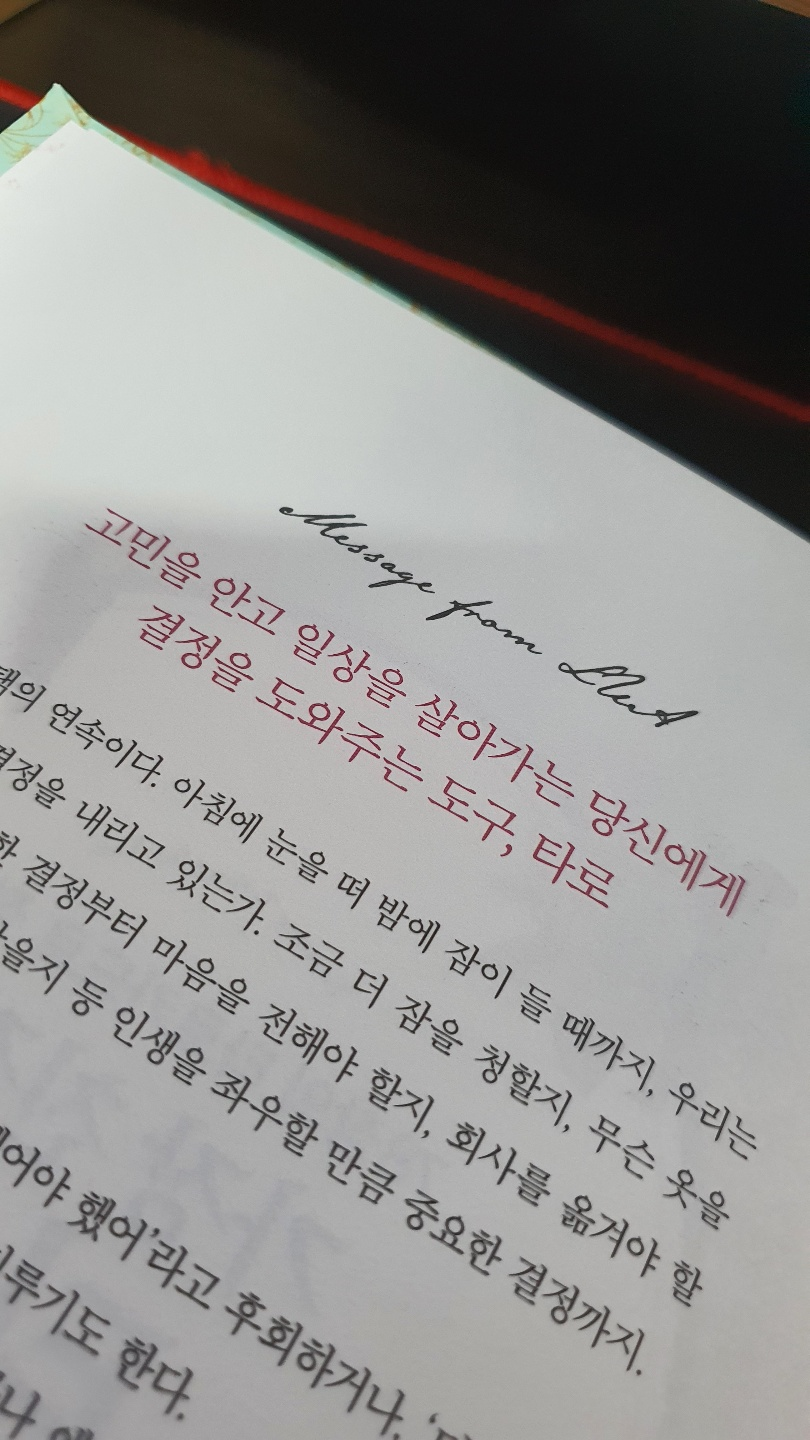 Message from LluA
고민을 안고 일상을 살아가는 당신에게
결정을 도와주는 도구, 타로
연속이다. 아침에 눈을 떠 밤에 잠이 들 때까지, 우리는
내리고 있는가. 조금 더 잠을 청할지, 무슨 옷을
결정부터 마음을 전해야 할지, 회사를 옮겨야 할
등 인생을 좌우할 만큼 중요한 결정까지.
했어’라고 후회하거나,
한다.